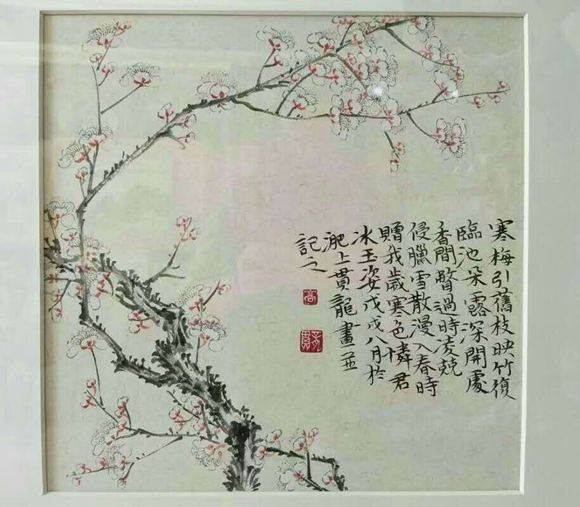 寒梅引舊枝映竹復
臨池朵露深開處
香聞瞥過時凌兢
侵臘雪散漫入春時
贈我歲寒色憐君
冰玉姿戊戌八月於
淝上貫龍畫並
記之
高